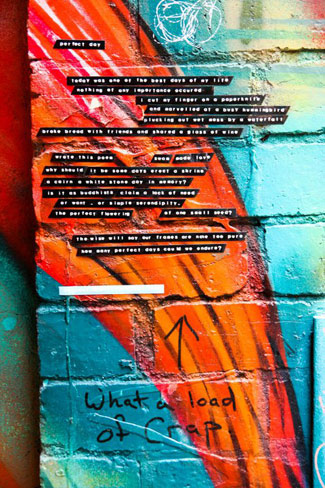 perfect day
today was one of the best days of my life
nothing of any importance occured.
i cut my finger on a paperknife
and marvelled at a busy hummingbird
out wet moss by a waterfall
broke bread with friends and shared a glass of wine
wrote this poem love
why should it be some days erect a shrine
a cairn a white stone day in memory?
is it as buddhists claim a lack of need
or want , or simple serendipity,
the perfect flowering of one small seed?
the wise will say our frames are too
how many perfect days could we endure?
What a load
of Crap.